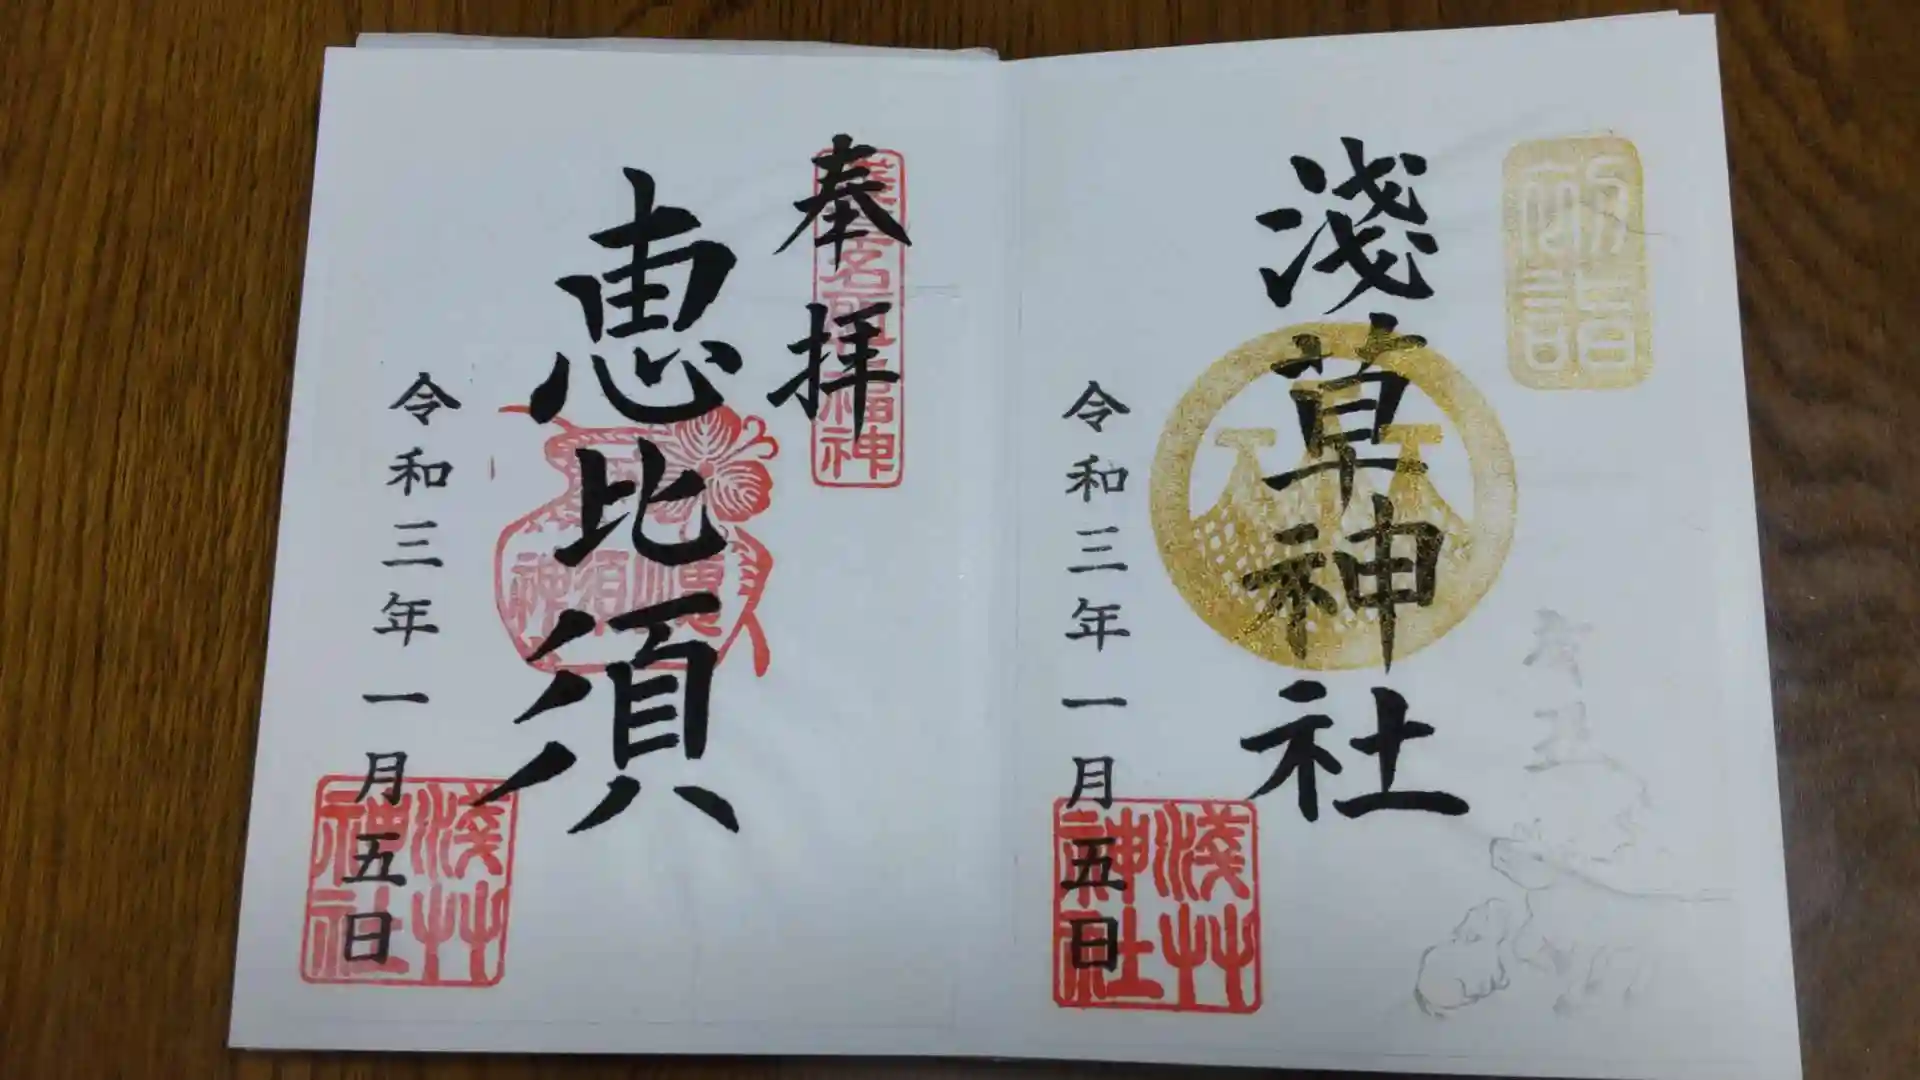 初詣
淺草神社
辛丑
令和三年一月五日
淺艸神社
奉拝
浅草名所七福神
恵比須
恵比須神
令和三年一月五日
淺艸神社